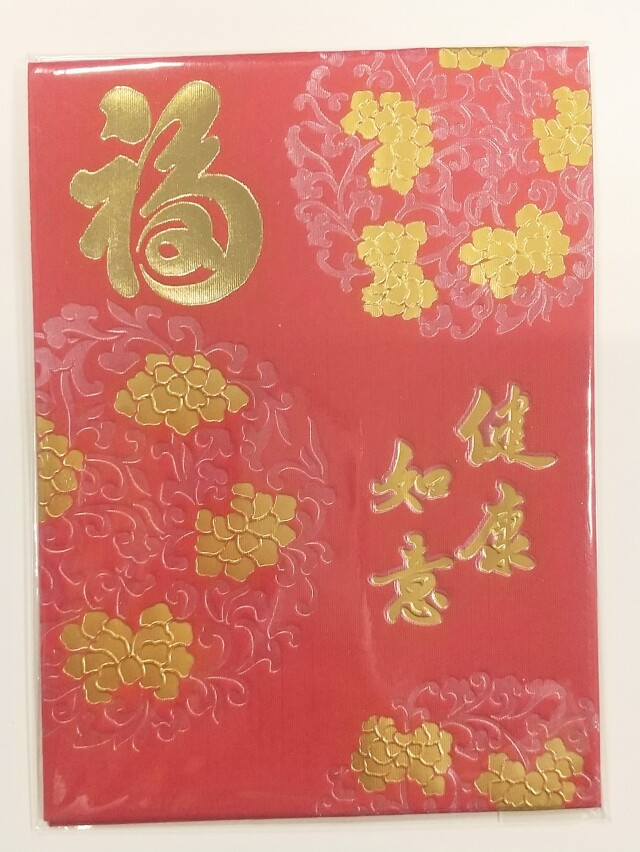 福
健康
如意